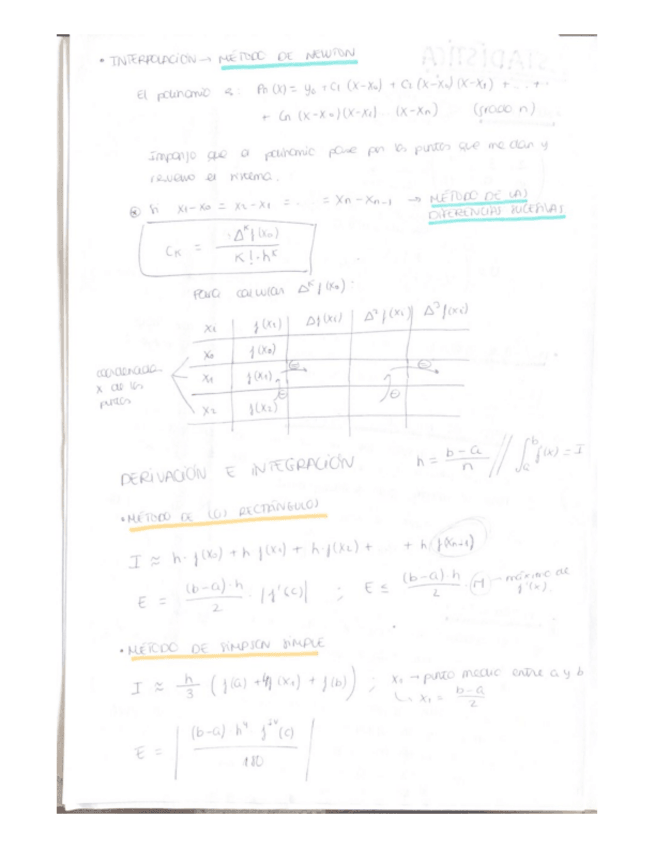 • INTERPOLACIÓN → MÉTODO DE NEWTON
El polinomio es: Pn(x) = y₀ + C₁ (x-x₀) + C₂ (x-x₀)(x-x₁) + ... + ..
+ Cn (x-x₀)(x-x₁) (x-xn) (grado n)
Impongo que el polinomio pase por los puntos que me dan y
resuelvo el sistema.
⊛ Si x₁-x₀ = x₂-x₁ = .. = xn-xn-₁ → MÉTODO DE LAS
DIFERENCIAS SUCESIVAS
Cκ = Δᴷf(x₀) / K!·hᴷ
Para calcular Δᴷf(x₀):
xi | f(xi) | Δf(xi) | Δ²f(xi) | Δ³f(xi)
x₀ | f(x₀)
coordenadas
x de los
puntos
x₁ | f(x₁) ⊖ ⊖
x₂ | f(x₂) ⊖ ⊖
DERIVACIÓN E INTEGRACIÓN h = b-a / n // ∫ₐᵇ f(x) = I
• MÉTODO DE LOS RECTÁNGULOS
I ≈ h·f(x₀) + h f(x₁) + h·f(x₂) + .. + h f(xn-₁)
E = (b-a)·h / 2 · |f'(c)| ; E ≤ (b-a) h / 2 · M → máximo de
f'(x).
• MÉTODO DE SIMPSON SIMPLE
I ≈ h/3 ( f(a) + 4f(x₁) + f(b) ) ; x₁ → punto medio entre a y b
↳ x₁ = b-a / 2
E = | (b-a)·h⁴·fᴵⱽ(c) / 180 |